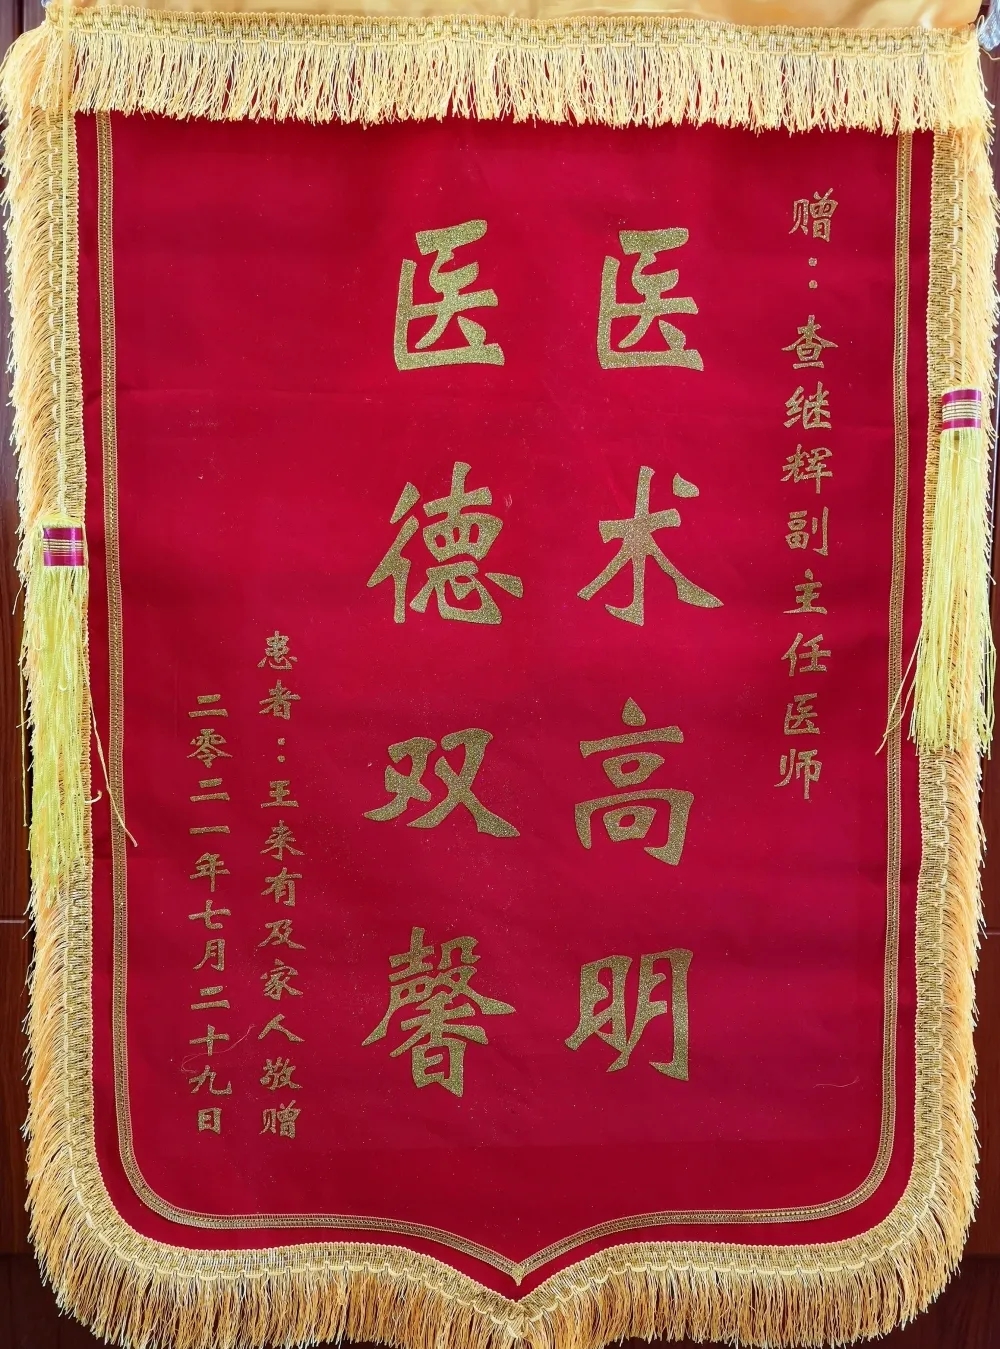 赠：查继辉副主任医师
医术高明
医德双馨
患者：王来有及家人敬赠
二零二一年七月二十九日